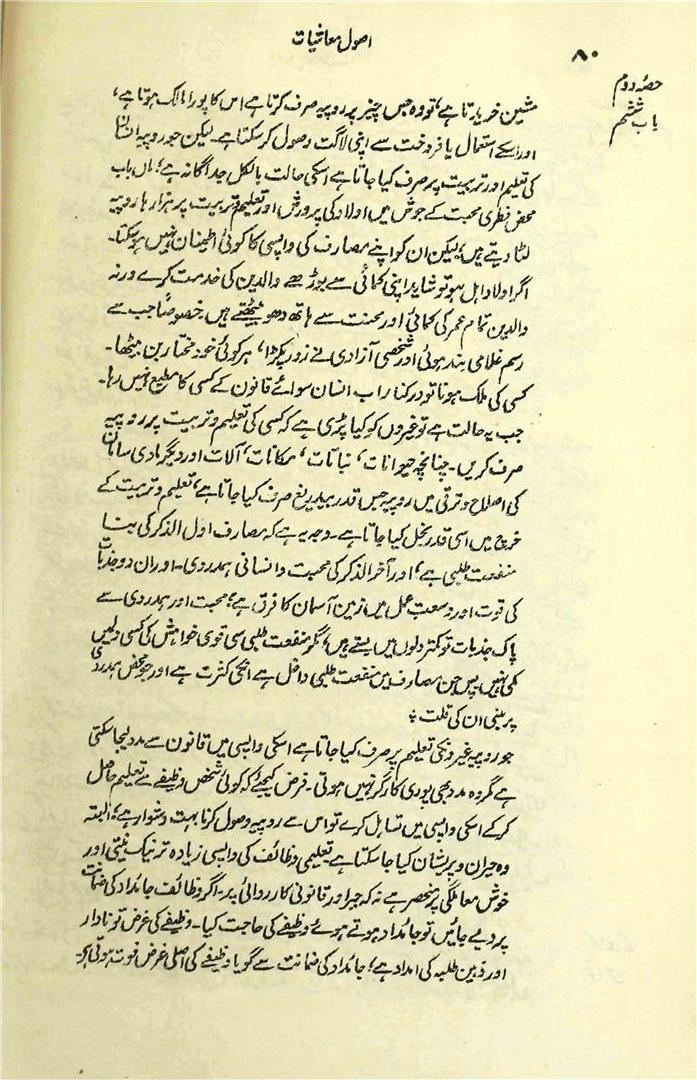 ۸۰
اصول معاشیات
حصہ دوم
باب ششم
مشین خریدتا ہے، تو وہ جس چیز پر روپیہ صرف کرتا ہے اس کا پورا مالک ہوتا ہے،
اور اسکے استعمال یا فروخت سے اپنی لاگت وصول کرسکتا ہے۔ لیکن جو روپیہ انسان
کی تعلیم اور تربیت پر صرف کیا جاتا ہے اسکی حالت بالکل جداگانہ ہے؛ ماں باپ
محض فطری محبت کے جوش میں اولاد کی پرورش اور تعلیم و تربیت پر ہزارہا روپیہ
لٹا دیتے ہیں، لیکن ان کو اپنے مصارف کی واپسی کا کوئی اطمینان نہیں ہوسکتا۔
اگر اولاد اہل ہو تو شاید اپنی کمائی سے بوڑھے والدین کی خدمت کرے ورنہ
والدین تمام عمر کی کمائی اور محنت سے ہاتھ دھو بیٹھتے ہیں خصوصاً جب سے
رسم غلامی بند ہوئی اور شخصی آزادی نے زور پکڑا، ہر کوئی خود مختار بن بیٹھا۔
کسی کی ملک ہونا تو درکنار اب انسان سوائے قانون کے کسی کا مطیع نہیں رہا۔
جب یہ حالت ہے تو غیروں کو کیا پڑی ہے کہ کسی کی تعلیم و تربیت پر روپیہ
صرف کریں۔ چنانچہ حیوانات، نباتات، مکانات، آلات اور دیگر مادی سامان
کی اصلاح و ترقی میں روپیہ جس قدر بیدریغ صرف کیا جاتا ہے، تعلیم و تربیت کے
خرچ میں اسی قدر بخل کیا جاتا ہے۔ وجہ یہ ہے کہ مصارف اول الذکر کی بنا
منفعت طلبی ہے، اور آخر الذکر کی محبت و انسانی ہمدردی۔ اور ان دو جذبات
کی قوت اور وسعت عمل میں زمین آسمان کا فرق ہے؛ محبت اور ہمدردی سے
پاک جذبات تو کمتر دلوں میں بستے ہیں، مگر منفعت طلبی سی قوی خواہش کی کسی دل میں
کمی نہیں پس جن مصارف میں منفعت طلبی داخل ہے انکی کثرت ہے اور جو محض ہمدردی
پر مبنی ان کی قلت
جو روپیہ غیروں کی تعلیم پر صرف کیا جاتا ہے اسکی واپسی میں قانون سے مدد لیجاسکتی
ہے گر وہ مدد بھی پوری کارگر نہیں ہوتی۔ فرض کیجئے کہ کوئی شخص وظیفے سے تعلیم حاصل
کرکے اسکی واپسی میں تساہل کرے تو اس سے روپیہ وصول کرنا بہت دشوار ہے؛ البتہ
وہ حیران و پریشان کیا جاسکتا ہے تعلیمی وظائف کی واپسی زیادہ تر نیک نیتی اور
خوش معاملگی پر منحصر ہے نہ کہ جبر اور قانونی کارروائی پر۔ اگر وظائف جائداد کی ضمانت
پر دیے جائیں تو جائداد ہوتے ہوئے وظیفے کی حاجت کیا۔ وظیفے کی غرض تو نادار
اور ذہین طلبہ کی امداد ہے؛ جائداد کی ضمانت سے گویا وظیفے کی اصلی غرض فوت ہوتی ہے۔